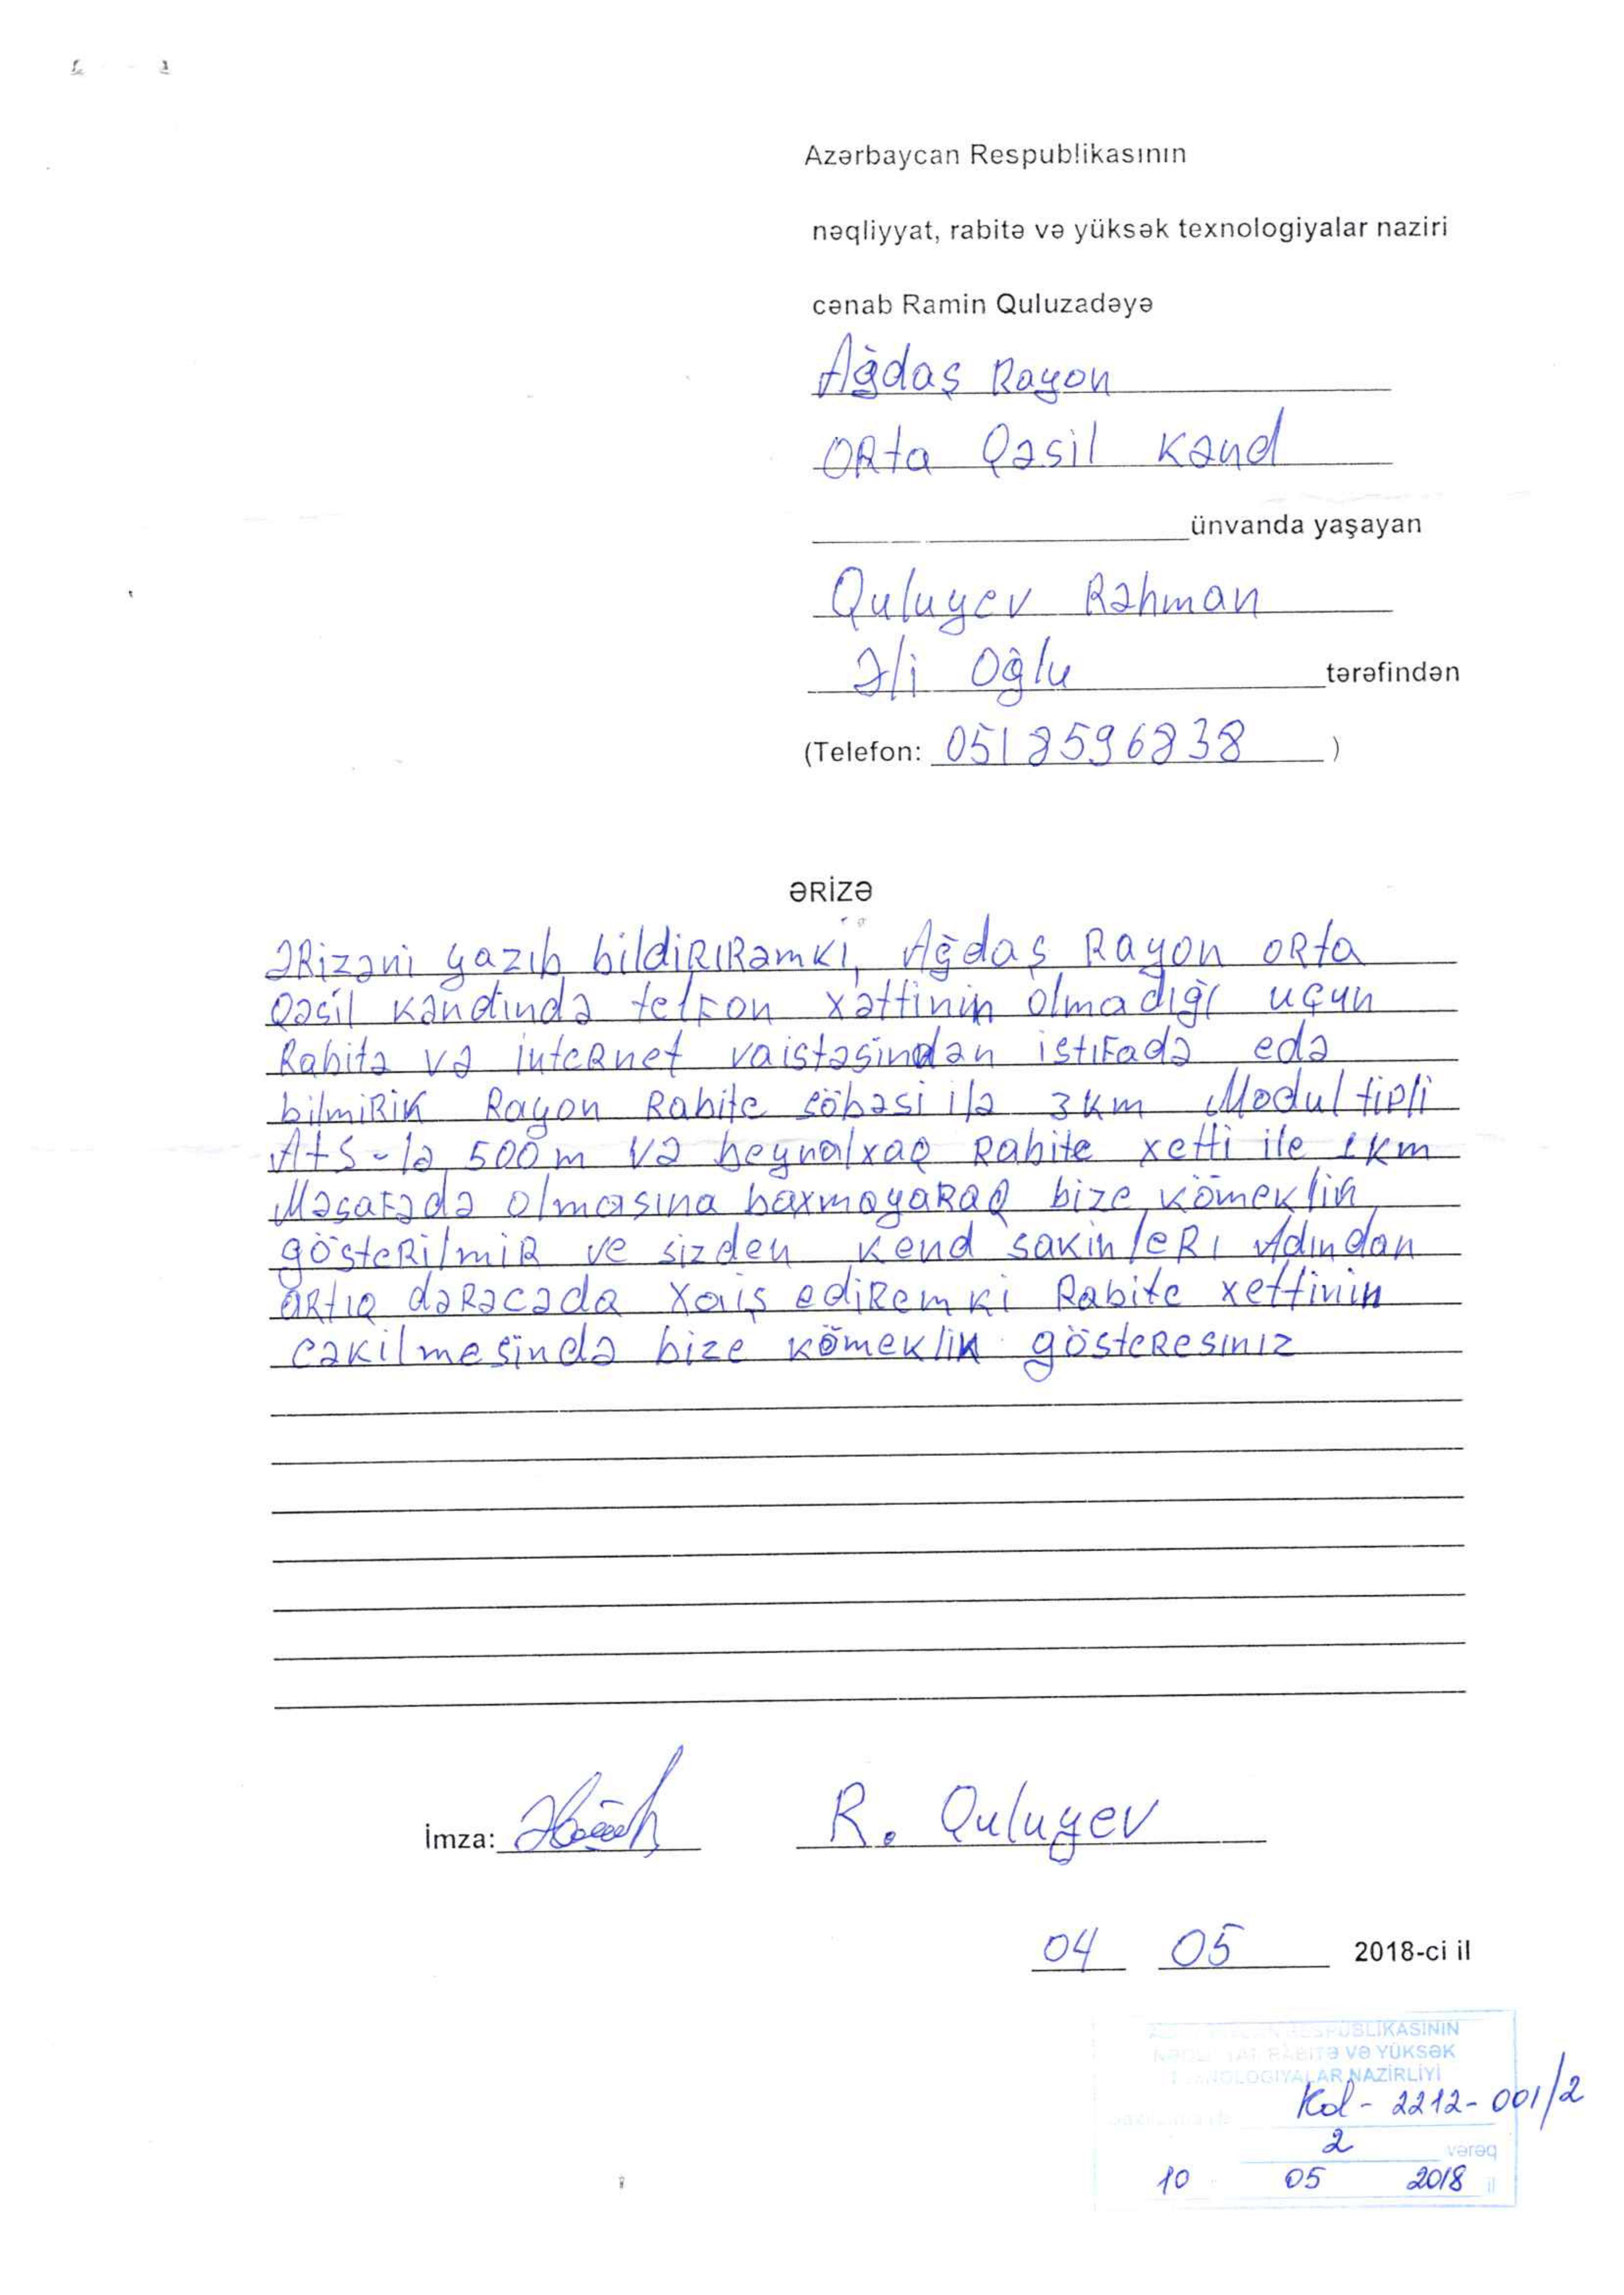 Azərbaycan Respublikasının
nəqliyyat, rabitə və yüksək texnologiyalar naziri
cənab Ramin Quluzadəyə
Ağdaş Rayon
ORta Qəsil Kənd
ünvanda yaşayan
Quluyev Rəhman
Əli Oğlu tərəfindən
(Telefon: 0518596838 )
ƏRİZƏ
ƏRizəni yazıb bildiRiRəmki, Ağdaş Rayon ORta
Qəsil Kəndində telfon xəttinin olmadığı uçun
Rabitə və inteRnet vaistəsindən istifadə edə
bilmiRik Rayon Rabite şöbəsi ilə 3km Modul tipli
AtS-lə 500m və beynəlxaq Rabite xetti ile 1km
Məsafədə olmasına baxmayaRaq bize kömeklik
gösteRilmiR ve sizden kend sakinleRi Adından
aRtıq dəRəcədə xaiş ediRemki Rabite xettinin
cəkilmesində bize kömeklik gösteResiniz
İmza: R. Quluyev
04 05 2018-ci il
RESPUBLİKASININ
RABİTƏ VƏ YÜKSƏK
TEXNOLOGİYALAR NAZİRLİYİ
Kol-2212-001/2
2 vərəq
10 05 2018 il